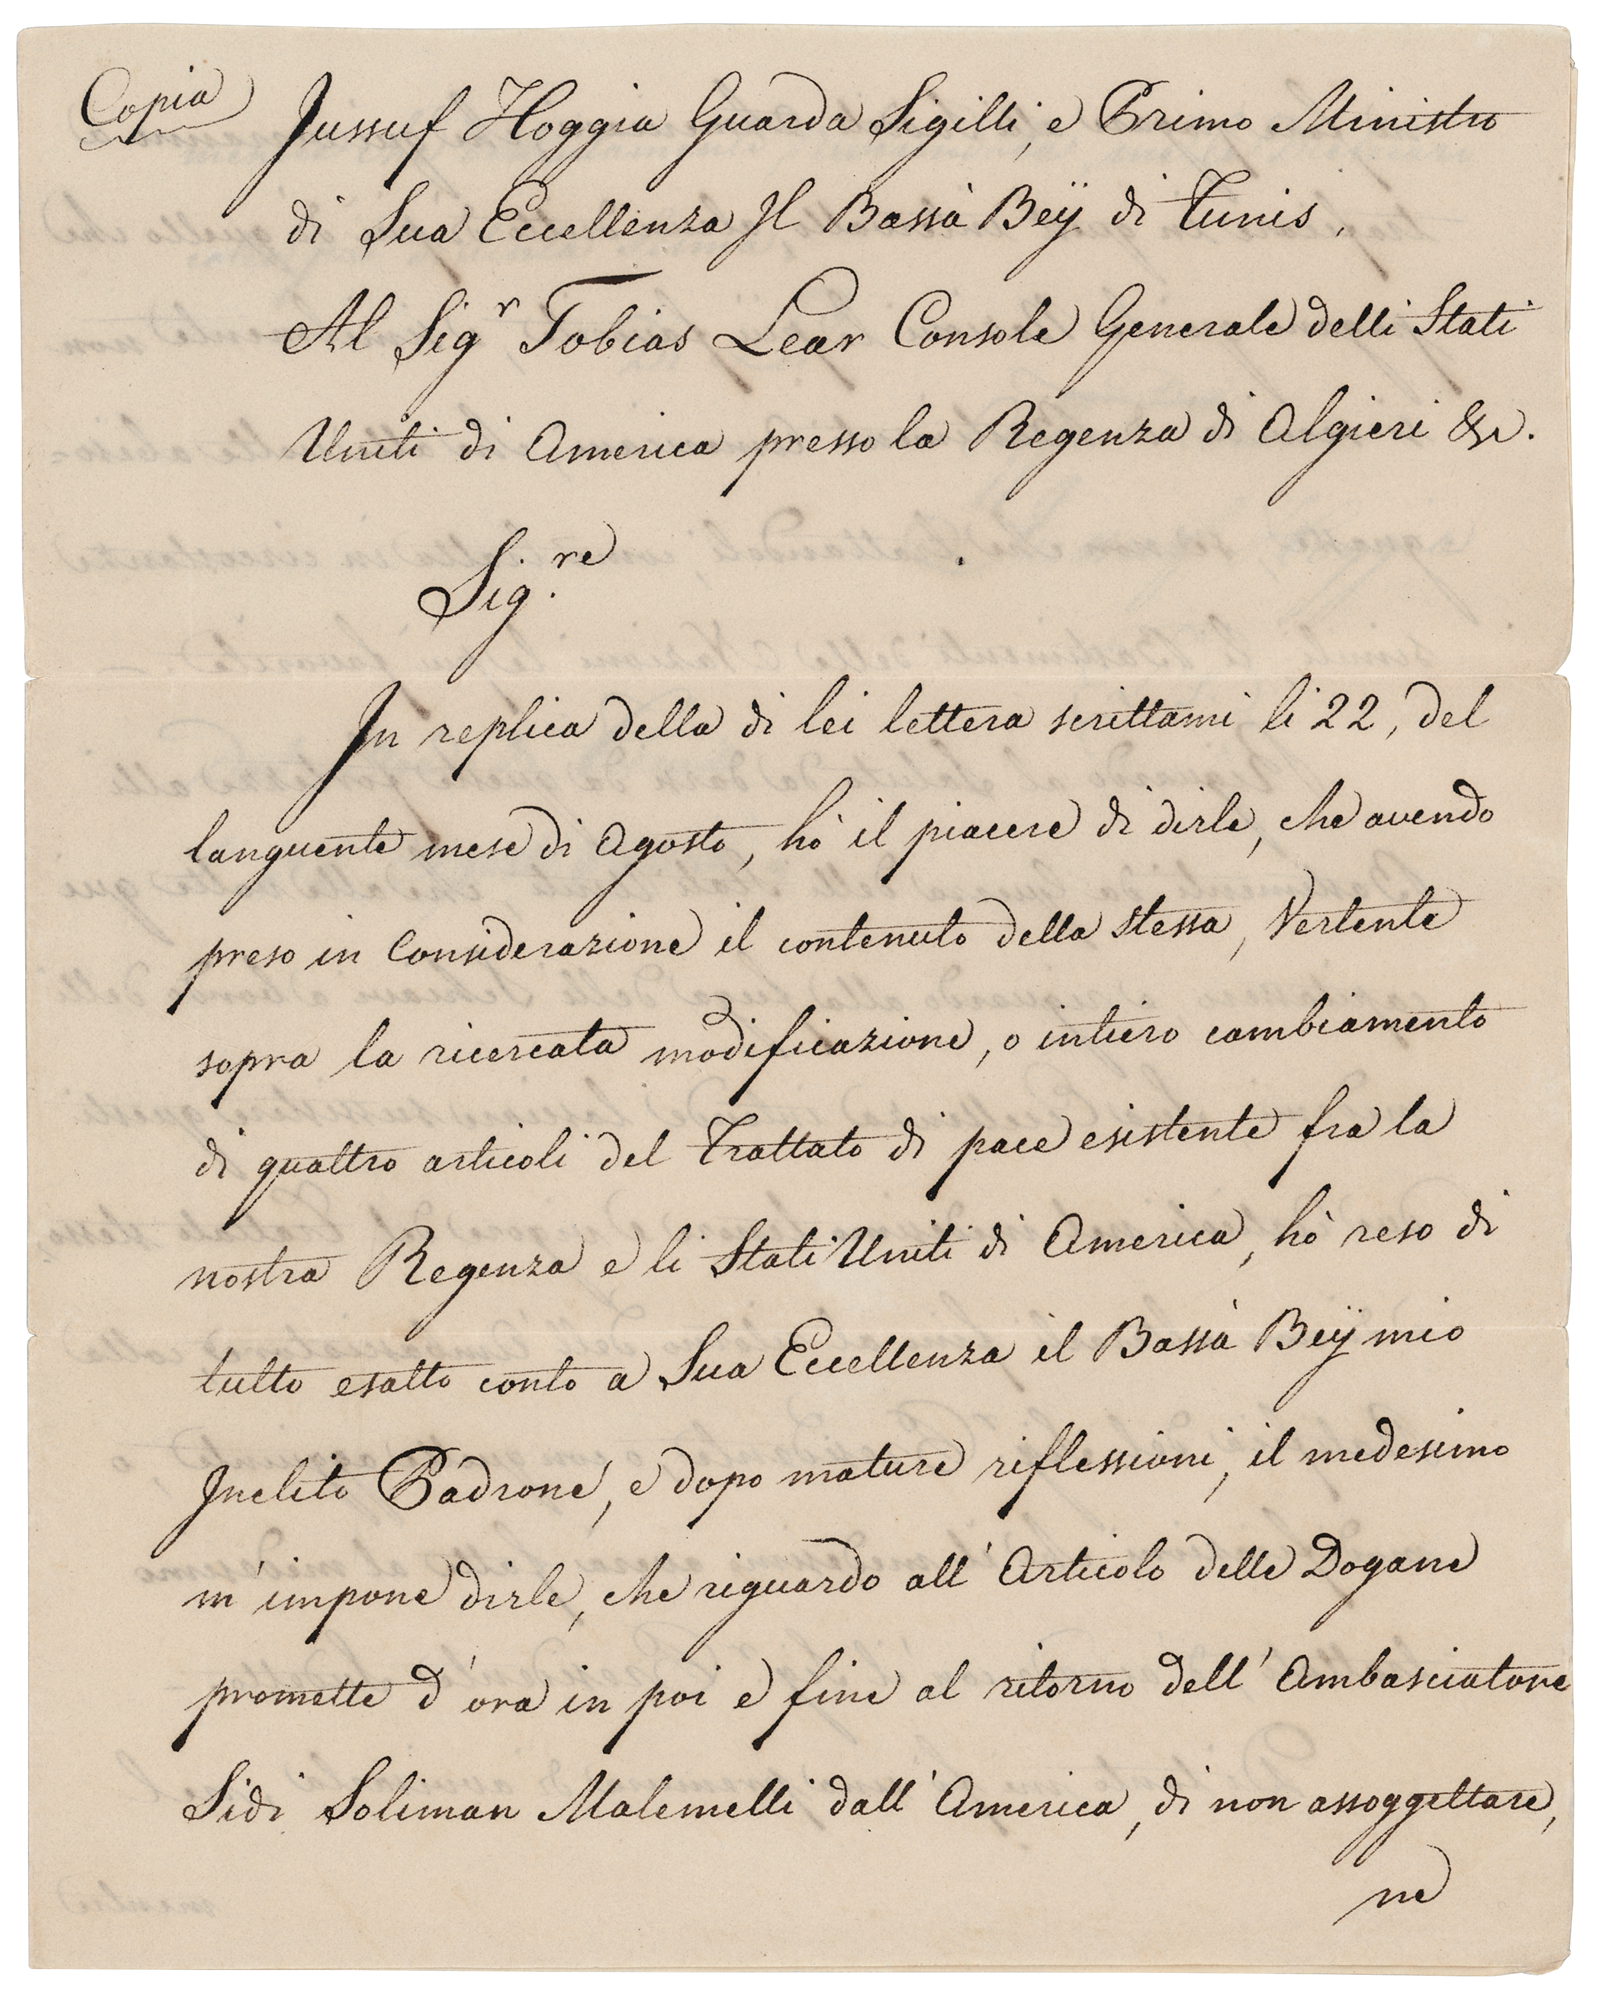 Copia
Jussuf Hoggia Guarda Sigilli, e Primo Ministro
di Sua Eccellenza Il Bassà Beÿ di Tunis,
Al Sig.r Tobias Lear Console Generale delli Stati
Uniti di America presso la Regenza di Algieri &c.
Sig.re
In replica della di lei lettera scrittami li 22, del
languente mese di Agosto, hò il piacere di dirle, che avendo
preso in Considerazione il contenuto della stessa, Vertente
sopra la ricercata modificazione, o intiero cambiamento
di quattro articoli del Trattato di pace esistente fra la
nostra Regenza e li Stati Uniti di America, hò reso di
tutto esatto conto a Sua Eccellenza il Bassà Beÿ mio
Inclito Padrone, e dopo mature riflessioni, il medesimo
m'impone dirle, che riguardo all'Articolo delle Dogane
promette d'ora in poi e fine al ritorno dell'Ambasciatore
Sidi Soliman Malemelli dall'America, di non assoggettare,
ne